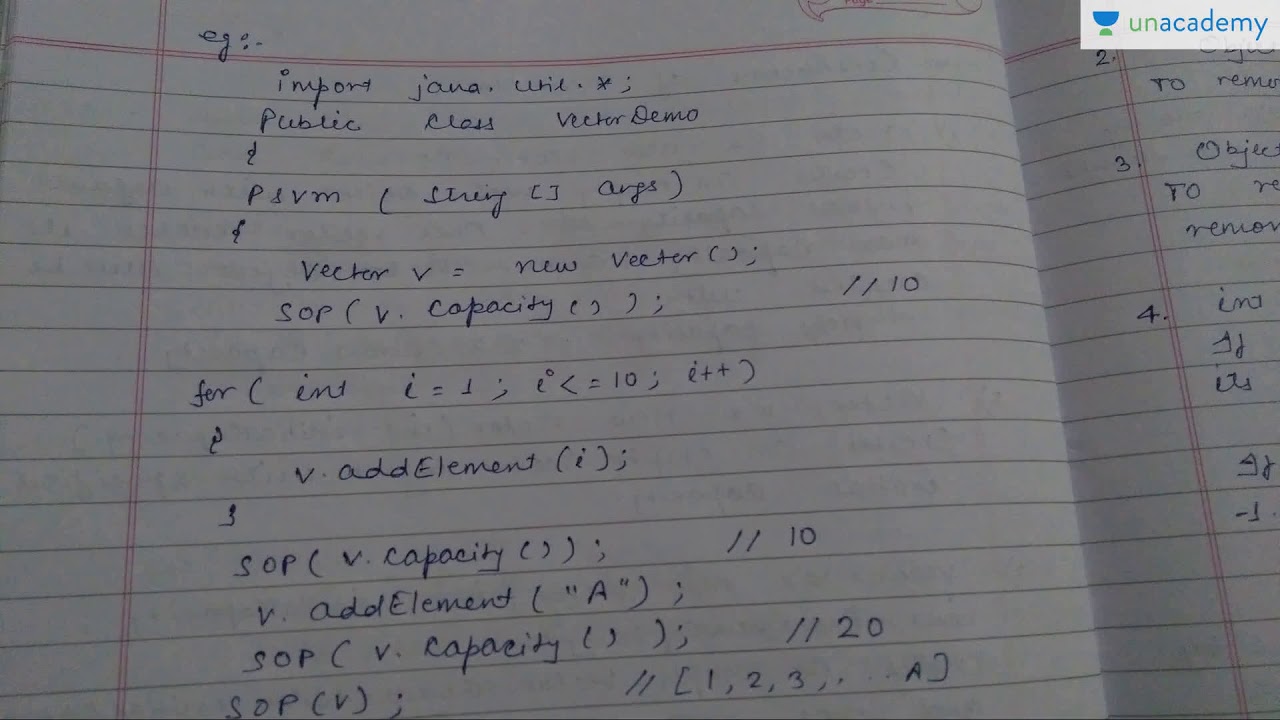 unacademy
eg:-
import java.util.*;
Public class VectorDemo
{
Psvm ( String [] args)
{
Vector v = new Vector();
SOP( v. Capacity () ); // 10
for( int i = 1 ; i <= 10; i++)
{
v. addElement (i);
}
SOP( v. Capacity ()); // 10
v. addElement ( "A") ;
SOP( v. Capacity () ); // 20
SOP(v) ; // [1, 2, 3, . . . A]
2. Obje
TO remo
3. Object
TO re
remov
4. int
If
its
If
-1.